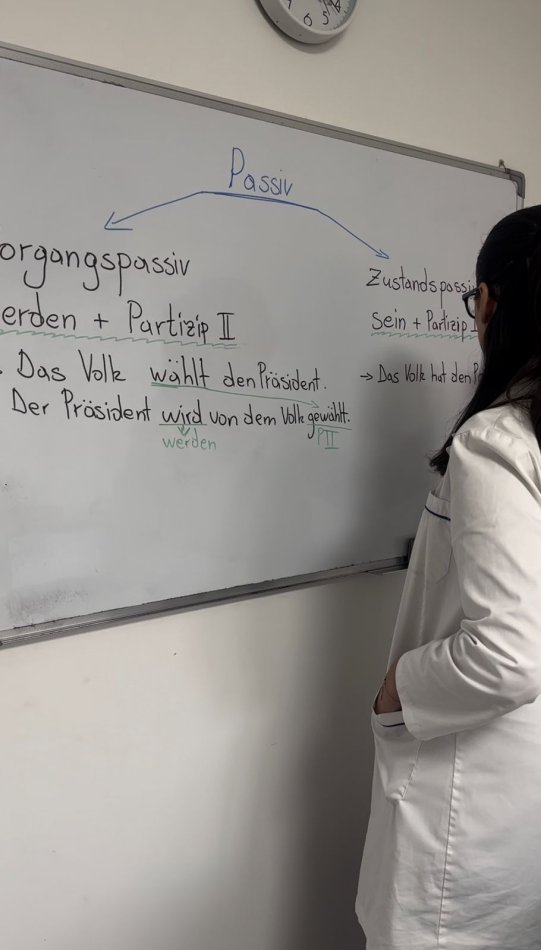 Passiv
organgspassiv
erden + Partizip II
Das Volk wählt den Präsident.
Der Präsident wird von dem Volk gewählt.
werden PII
Zustandspassi
sein + Partizip
→ Das Volk hat den